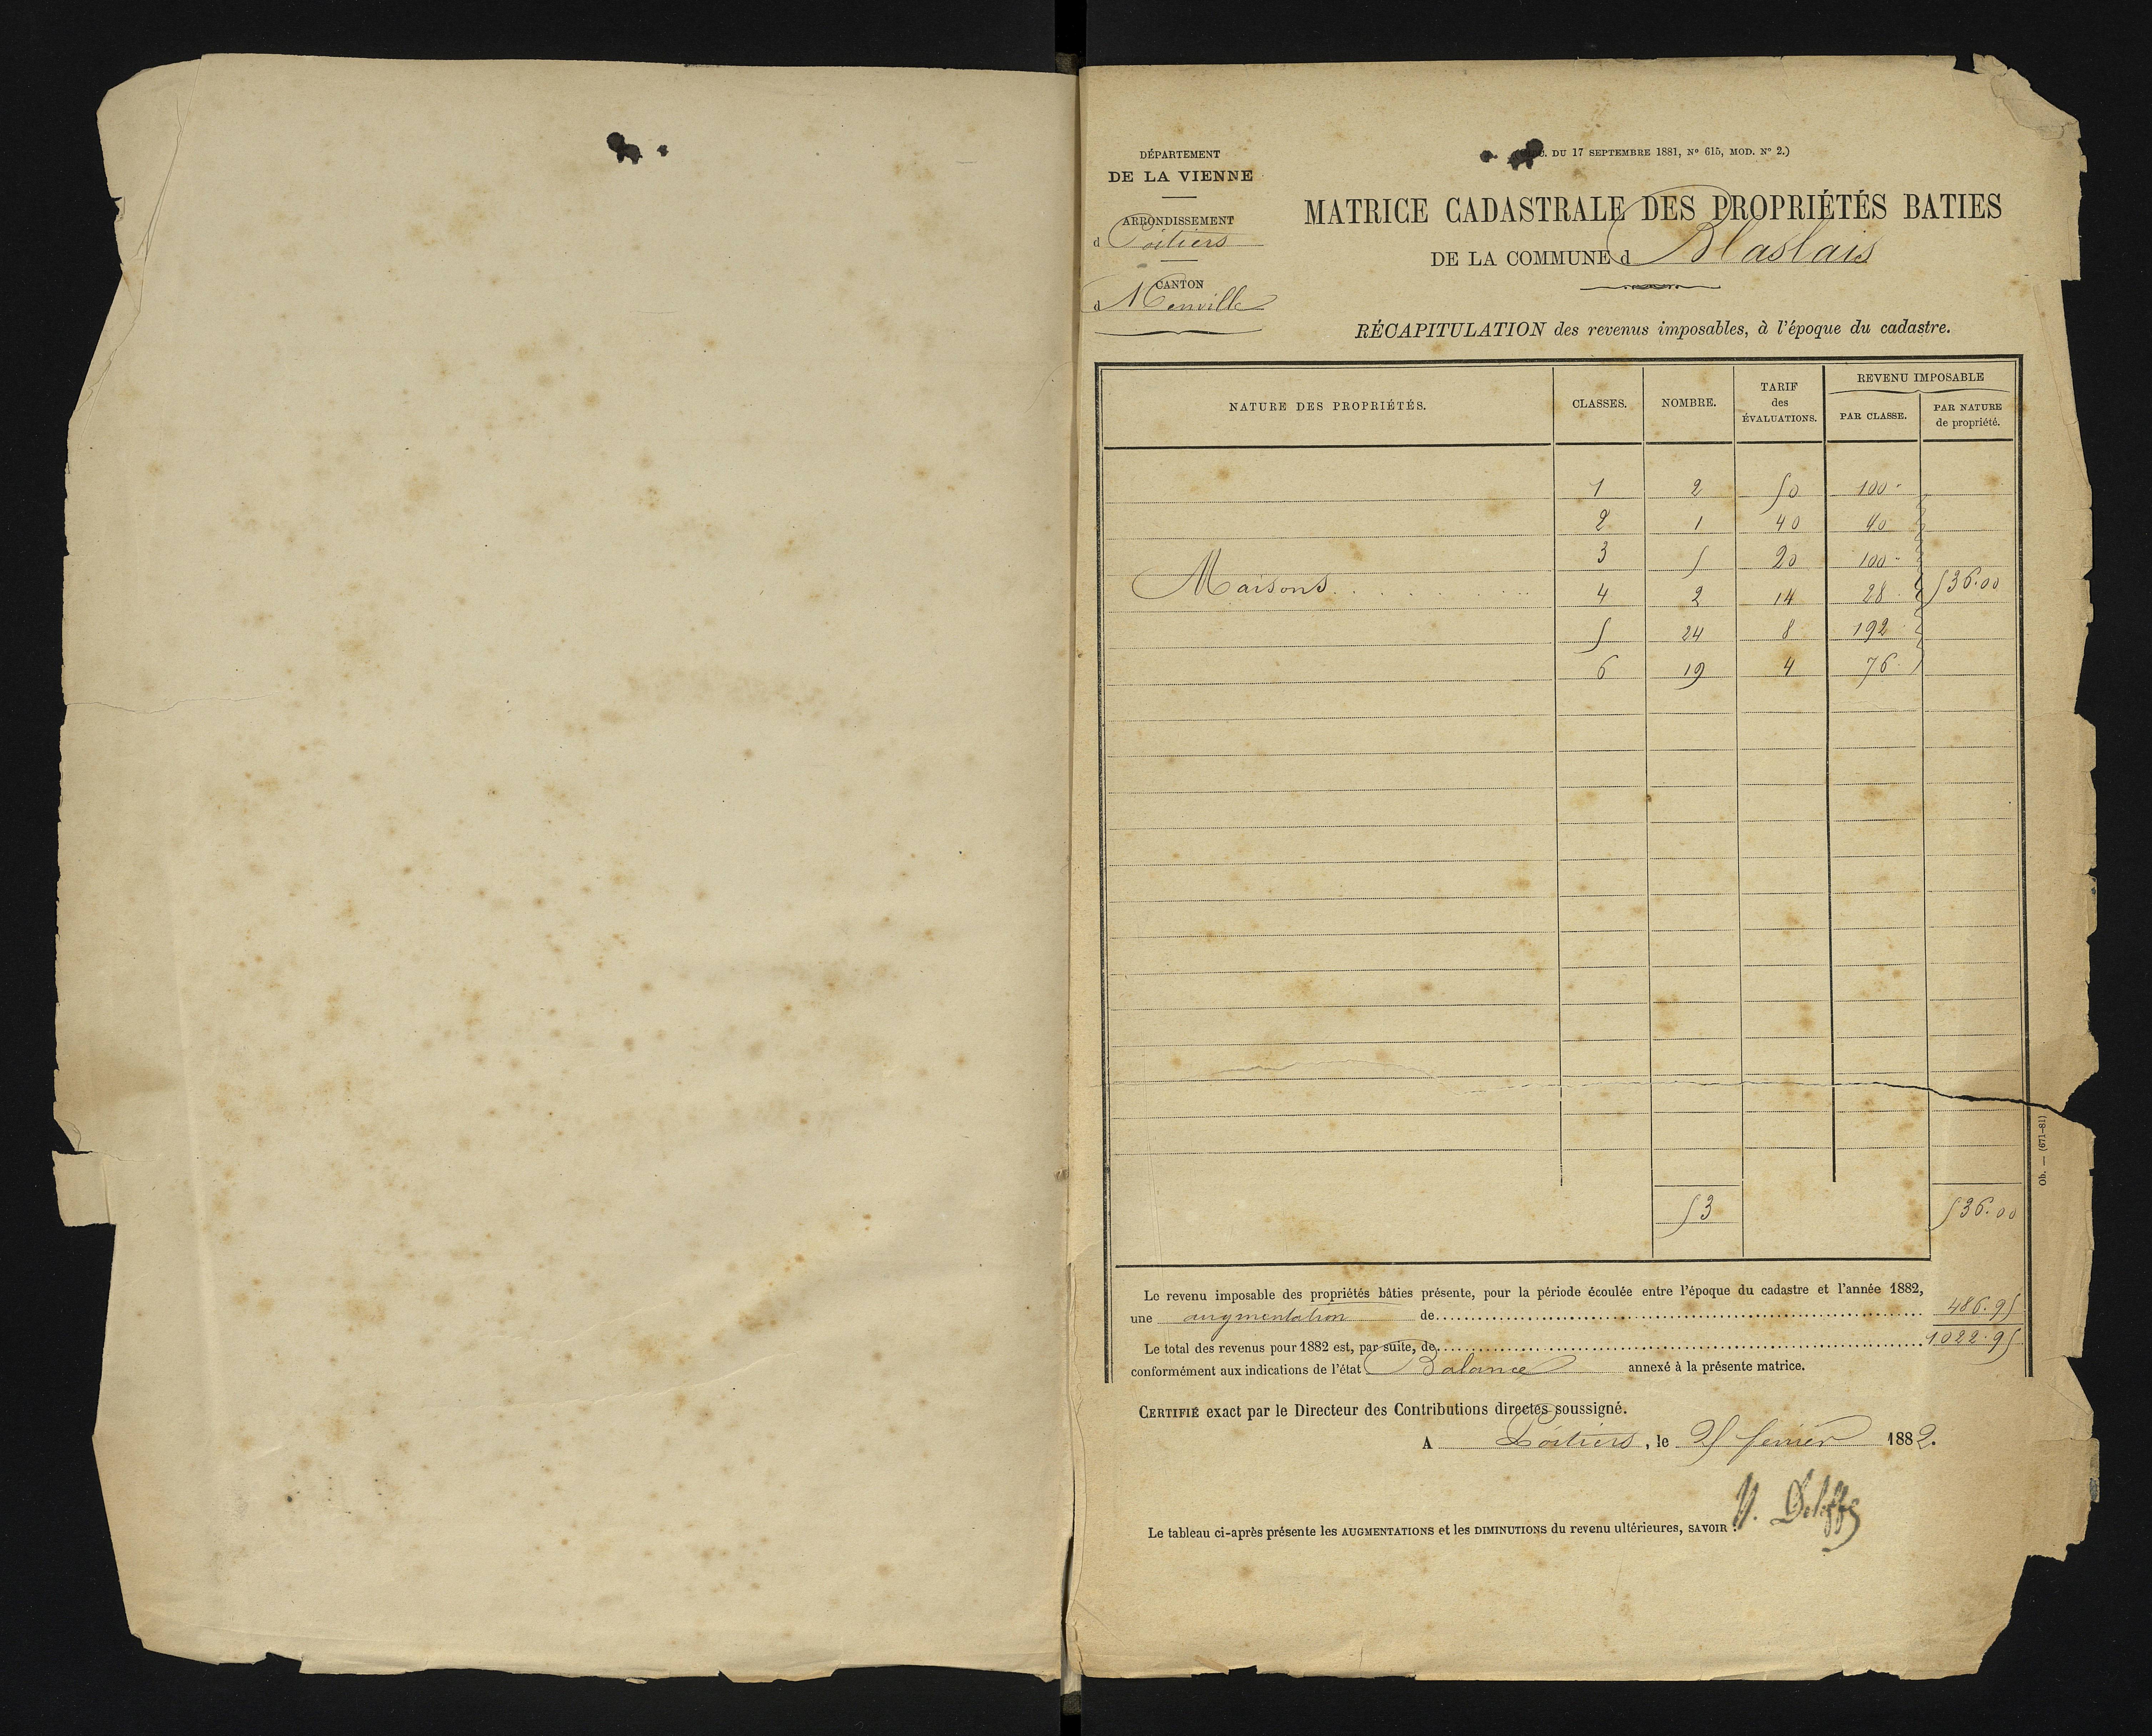 DÉPARTEMENT
DE LA VIENNE
ARRONDISSEMENT
d Poitiers
CANTON
d
DU 17 SEPTEMBRE 1881, Nº 615, MOD. Nº 2.)
MATRICE CADASTRALE DES PROPRIÉTÉS BATIES
DE LA COMMUNE d Blaslais
RÉCAPITULATION des revenus imposables, à l'époque du cadastre.
NATURE DES PROPRIÉTÉS. CLASSES. NOMBRE. TARIF des ÉVALUATIONS. REVENU IMPOSABLE
PAR CLASSE. PAR NATURE de propriété.
1 2 50 100
2 1 40 40
3 5 20 100
Maisons 4 2 14 28 536.00
5 24 8 192
6 19 4 76
53 536.00
Le revenu imposable des propriétés bâties présente, pour la période écoulée entre l'époque du cadastre et l'année 1882,
une augmentation de 486.95
Le total des revenus pour 1882 est, par suite, de 1022.95
conformément aux indications de l'état Balance annexé à la présente matrice.
CERTIFIÉ exact par le Directeur des Contributions directes soussigné.
A Poitiers, le 25 février 1882.
Le tableau ci-après présente les AUGMENTATIONS et les DIMINUTIONS du revenu ultérieures, SAVOIR :
Ob. — (671-81)